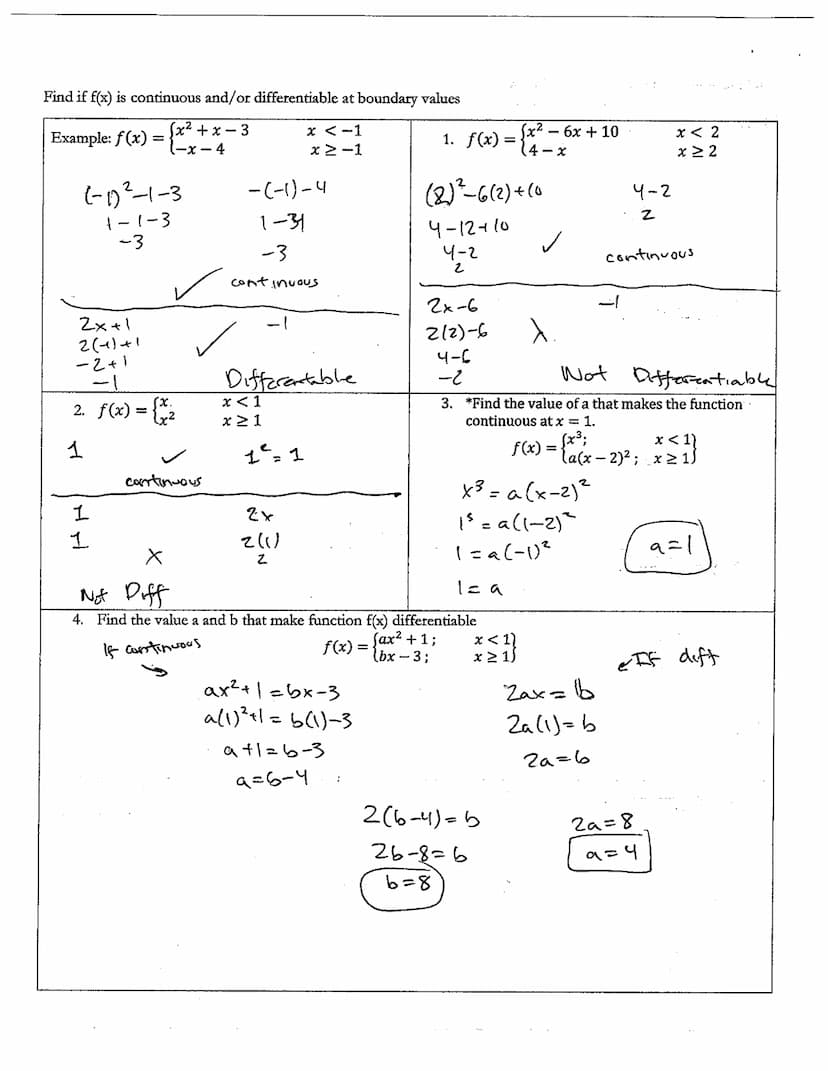 Find if f(x) is continuous and/or differentiable at boundary values
Example: f(x) = {x² + x − 3    x < −1
−x − 4    x ≥ −1
(-1)²-1-3    -(-1)-4
1-1-3    1-4
-3    -3
✓ continuous
2x+1    -1
2(-1)+1 ✓
-2+1
-1    Differentable
1. f(x) = {x² − 6x + 10    x < 2
4 − x    x ≥ 2
(2)²-6(2)+10    4-2
4-12+10    2
4-2 ✓ continuous
2
2x-6    -1
2(2)-6
4-6
-2    Not Differentiable
2. f(x) = {x    x < 1
x²    x ≥ 1
1 ✓ 1² = 1
continuous
1    2x
1    2(1)
X    2
Not Diff
3. *Find the value of a that makes the function
continuous at x = 1.
f(x) = {x³;    x < 1}
a(x − 2)²;    x ≥ 1
x³ = a(x-2)²
1³ = a(1-2)²
1 = a(-1)²    a=1
1 = a
4. Find the value a and b that make function f(x) differentiable
f(x) = {ax² + 1;    x < 1}
bx − 3;    x ≥ 1
If continuous    If diff
ax²+1 = bx-3    2ax = b
a(1)²+1 = b(1)-3    2a(1) = b
a+1 = b-3    2a = b
a = b-4
2(b-4) = b    2a = 8
2b-8 = b    a = 4
b = 8